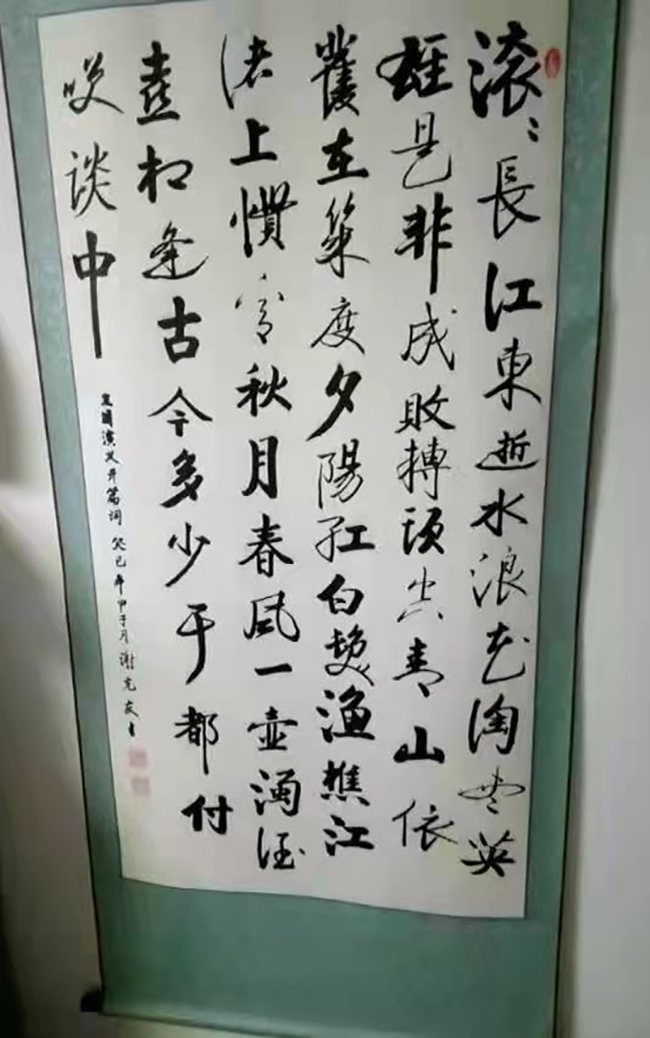 滚〻長江東逝水浪花淘盡英
雄是非成敗轉頭空青山依
舊在幾度夕陽紅白髮漁樵江
渚上慣看秋月春風一壺濁酒
喜相逢古今多少事都付
笑談中
三國演义开篇词 癸巳年甲子月谢友书